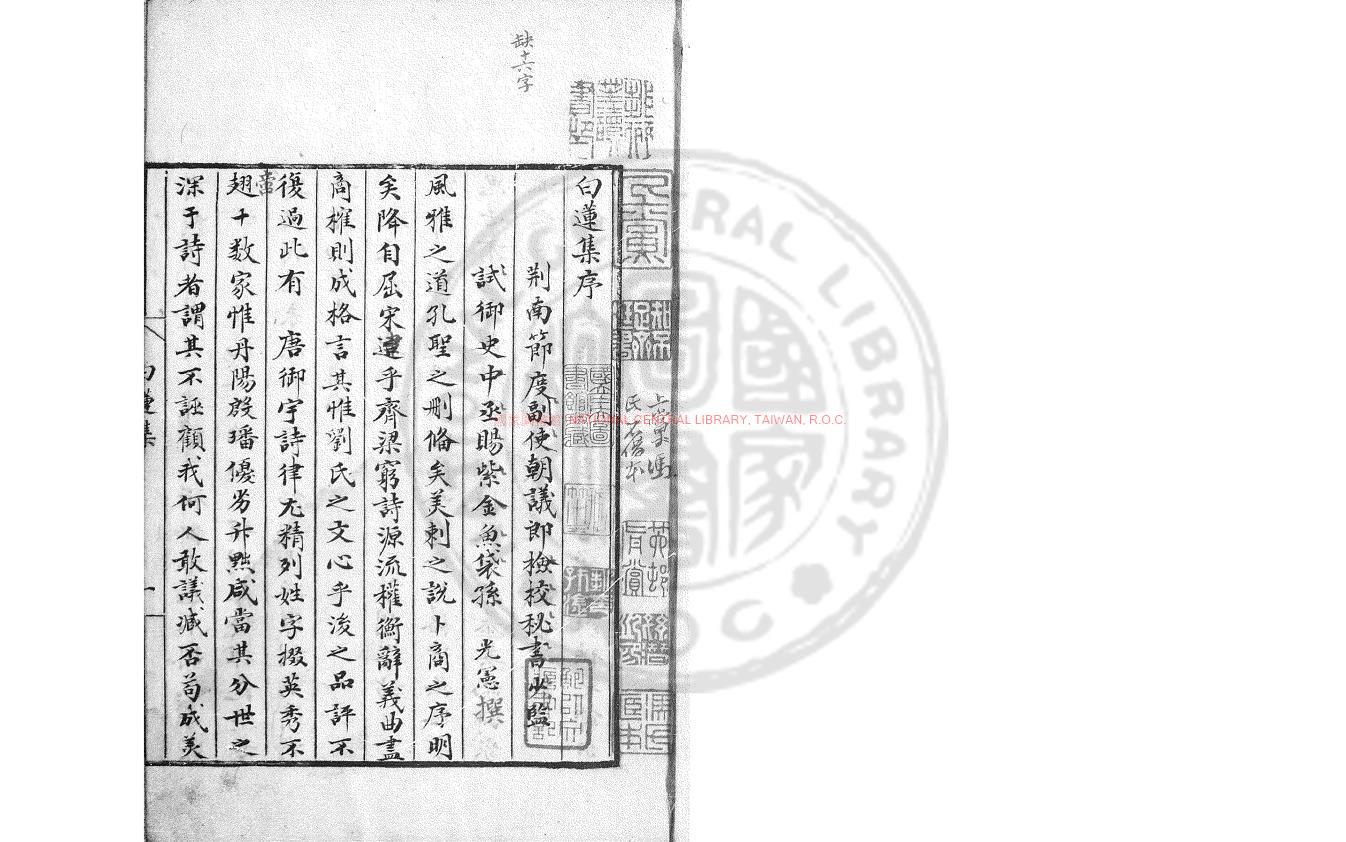 缺十六字
白蓮集序
荆南節度副使朝議郎檢校秘書少監
試御史中丞賜紫金魚袋孫 光憲撰
風雅之道孔聖之刪備矣美刺之說卜商之序明
矣降自屈宋逮乎齊梁窮詩源流權衡辭義曲盡
商榷則成格言其惟劉氏之文心乎後之品評不
復過此有 唐御宇詩律尤精列姓字掇英秀不
啻
翅十数家惟丹陽殷璠優劣升黜咸當其分世之
深于詩者謂其不誣顧我何人敢議臧否苟成美
白蓮集
一
NATIONAL CENTRAL LIBRARY, TAIWAN, R.O.C.